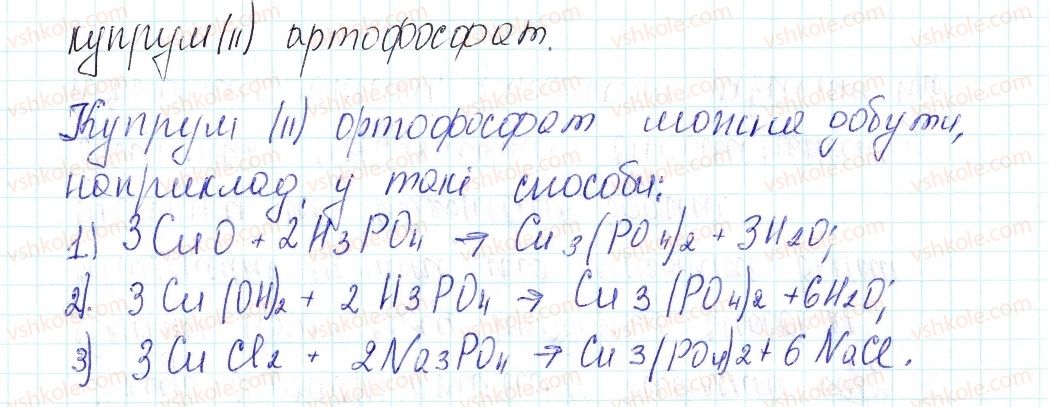 купрум(ІІ) ортофосфат.
Купрум (ІІ) ортофосфат можна добути,
наприклад, у такі способи:
1.) 3CuO + 2H3PO4 → Cu3(PO4)2 + 3H2O;
2). 3Cu(OH)2 + 2H3PO4 → Cu3(PO4)2 + 6H2O;
3) 3CuCl2 + 2Na3PO4 → Cu3(PO4)2 + 6NaCl.